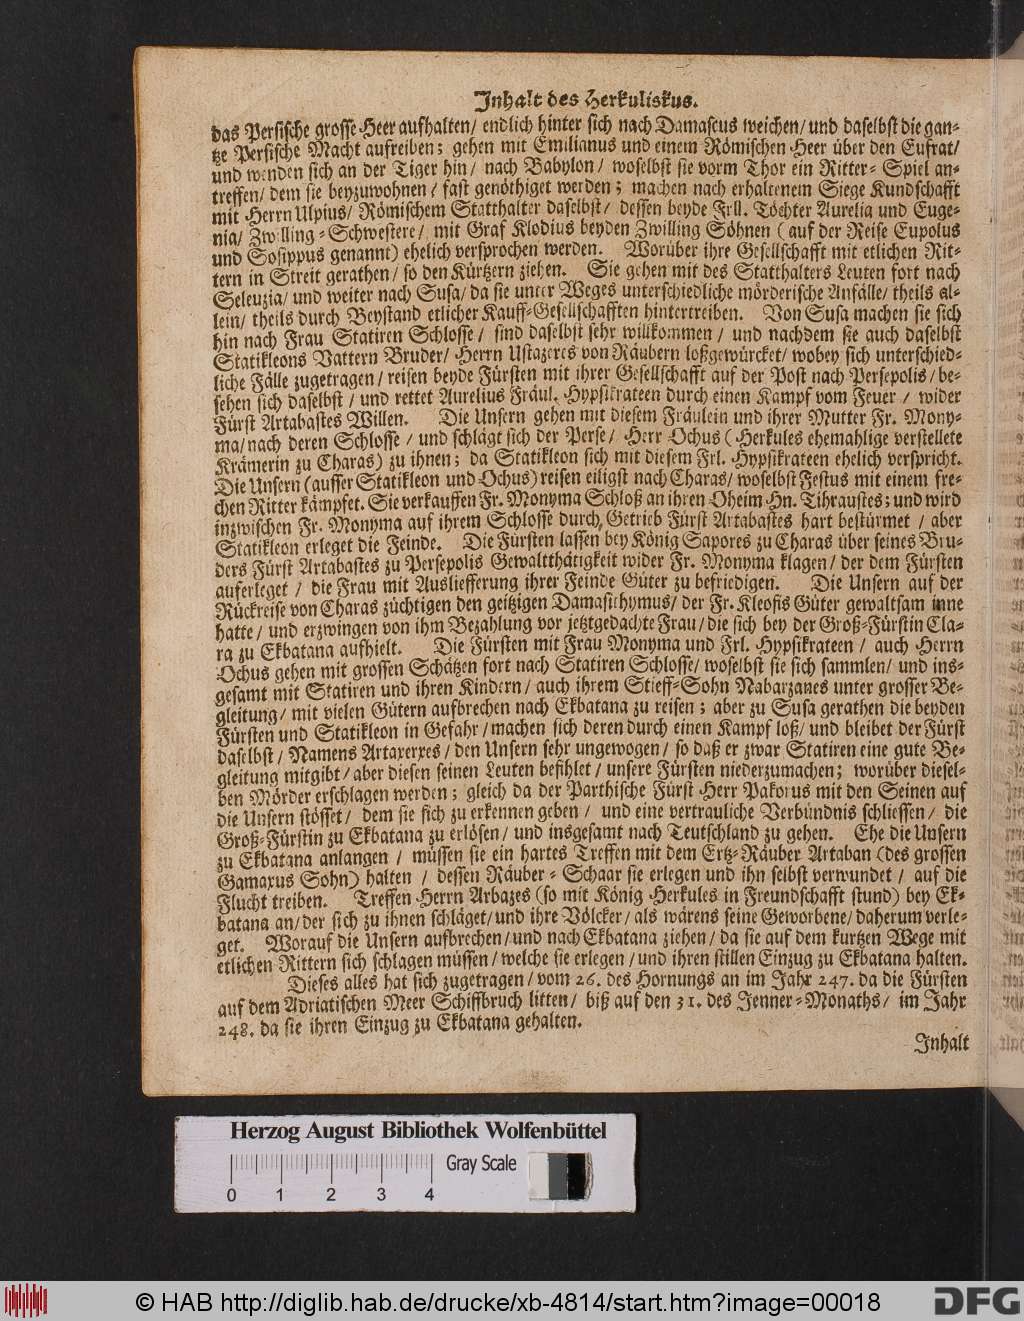 Inhalt des Herkuliskus.
das Persische grosse Heer aufhalten/ endlich hinter sich nach Damascus weichen/ und daselbst die gan-
tze Persische Macht aufreiben; gehen mit Emilianus und einem Römischen Heer über den Eufrat/
und wenden sich an der Tiger hin/ nach Babylon/ woselbst sie vorm Thor ein Ritter-Spiel an-
treffen/ dem sie beyzuwohnen/ fast genöthiget werden; machen nach erhaltenem Siege Kundschafft
mit Herrn Ulpius/ Römischem Statthalter daselbst/ dessen beyde Frll. Töchter Aurelia und Euge-
nia/ Zwilling-Schwestere/ mit Graf Klodius beyden Zwilling Söhnen (auf der Reise Eupolus
und Sosippus genannt) ehelich versprochen werden. Worüber ihre Gesellschafft mit etlichen Rit-
tern in Streit gerathen/ so den Kürtzern ziehen. Sie gehen mit des Statthalters Leuten fort nach
Seleuzia/ und weiter nach Susa/ da sie unter Weges unterschiedliche mörderische Anfälle/ theils al-
lein/ theils durch Beystand etlicher Kauff-Gesellschafften hintertreiben. Von Susa machen sie sich
hin nach Frau Statiren Schlosse/ sind daselbst sehr willkommen/ und nachdem sie auch daselbst
Statikleons Vattern Bruder/ Herrn Ustazeres von Räubern loßgewürcket/ wobey sich unterschied-
liche Fälle zugetragen/ reisen beyde Fürsten mit ihrer Gesellschafft auf der Post nach Persepolis/ be-
sehen sich daselbst/ und rettet Aurelius Fräul. Hypsikrateen durch einen Kampf vom Feuer/ wider
Fürst Artabastes Willen. Die Unsern gehen mit diesem Fräulein und ihrer Mutter Fr. Mony-
ma/ nach deren Schlosse/ und schlägt sich der Perse/ Herr Ochus (Herkules ehemahlige verstellete
Krämerin zu Charas) zu ihnen; da Statikleon sich mit diesem Frl. Hypsikrateen ehelich verspricht.
Die Unsern (ausser Statikleon und Ochus) reisen eiligst nach Charas/ woselbst Festus mit einem fre-
chen Ritter kämpfet. Sie verkauffen Fr. Monyma Schloß an ihren Oheim Hn. Tihraustes; und wird
inzwischen Fr. Monyma auf ihrem Schlosse durch Getrieb Fürst Artabastes hart bestürmet/ aber
Statikleon erleget die Feinde. Die Fürsten lassen bey König Sapores zu Charas über seines Bru-
ders Fürst Artabastes zu Persepolis Gewaltthätigkeit wider Fr. Monyma klagen/ der dem Fürsten
auferleget/ die Frau mit Auslieferung ihrer Feinde Güter zu befriedigen. Die Unsern auf der
Rückreise von Charas züchtigen den geitzigen Damasithymus/ der Fr. Kleofis Güter gewaltsam inne
hatte/ und erzwingen von ihm Bezahlung vor jetztgedachte Frau/ die sich bey der Groß-Fürstin Cla-
ra zu Ekbatana aufhielt. Die Fürsten mit Frau Monyma und Frl. Hypsikrateen/ auch Herrn
Ochus gehen mit grossen Schätzen fort nach Statiren Schlosse/ woselbst sie sich sammlen/ und ins-
gesamt mit Statiren und ihren Kindern/ auch ihrem Stieff-Sohn Nabarzanes unter grosser Be-
gleitung/ mit vielen Gütern aufbrechen nach Ekbatana zu reisen; aber zu Susa gerathen die beyden
Fürsten und Statikleon in Gefahr/ machen sich deren durch einen Kampf loß/ und bleibet der Fürst
daselbst/ Namens Artaxerxes/ den Unsern sehr ungewogen/ so daß er zwar Statiren eine gute Be-
gleitung mitgibt/ aber diesen seinen Leuten befihlet/ unsere Fürsten niederzumachen; worüber diesel-
ben Mörder erschlagen werden; gleich da der Parthische Fürst Herr Pakorus mit den Seinen auf
die Unsern stösset/ dem sie sich zu erkennen geben/ und eine vertrauliche Verbündnis schliessen/ die
Groß-Fürstin zu Ekbatana zu erlösen/ und insgesamt nach Teutschland zu gehen. Ehe die Unsern
zu Ekbatana anlangen/ müssen sie ein hartes Treffen mit dem Ertz-Räuber Artaban (des grossen
Gamaxus Sohn) halten/ dessen Räuber-Schaar sie erlegen und ihn selbst verwundet/ auf die
Flucht treiben. Treffen Herrn Arbazes (so mit König Herkules in Freundschafft stund) bey Ek-
batana an/ der sich zu ihnen schläget/ und ihre Völcker/ als wärens seine Geworbene/ daherum verle-
get. Worauf die Unsern aufbrechen/ und nach Ekbatana ziehen/ da sie auf dem kurtzen Wege mit
etlichen Rittern sich schlagen müssen/ welche sie erlegen/ und ihren stillen Einzug zu Ekbatana halten.
Dieses alles hat sich zugetragen/ vom 26. des Hornungs an im Jahr 247. da die Fürsten
auf dem Adriatischen Meer Schiffbruch litten/ biß auf den 31. des Jenner-Monaths/ im Jahr
248. da sie ihren Einzug zu Ekbatana gehalten.
Inhalt
Herzog August Bibliothek Wolfenbüttel
Gray Scale
0 1 2 3 4
© HAB http://diglib.hab.de/drucke/xb-4814/start.htm?image=00018
DFG